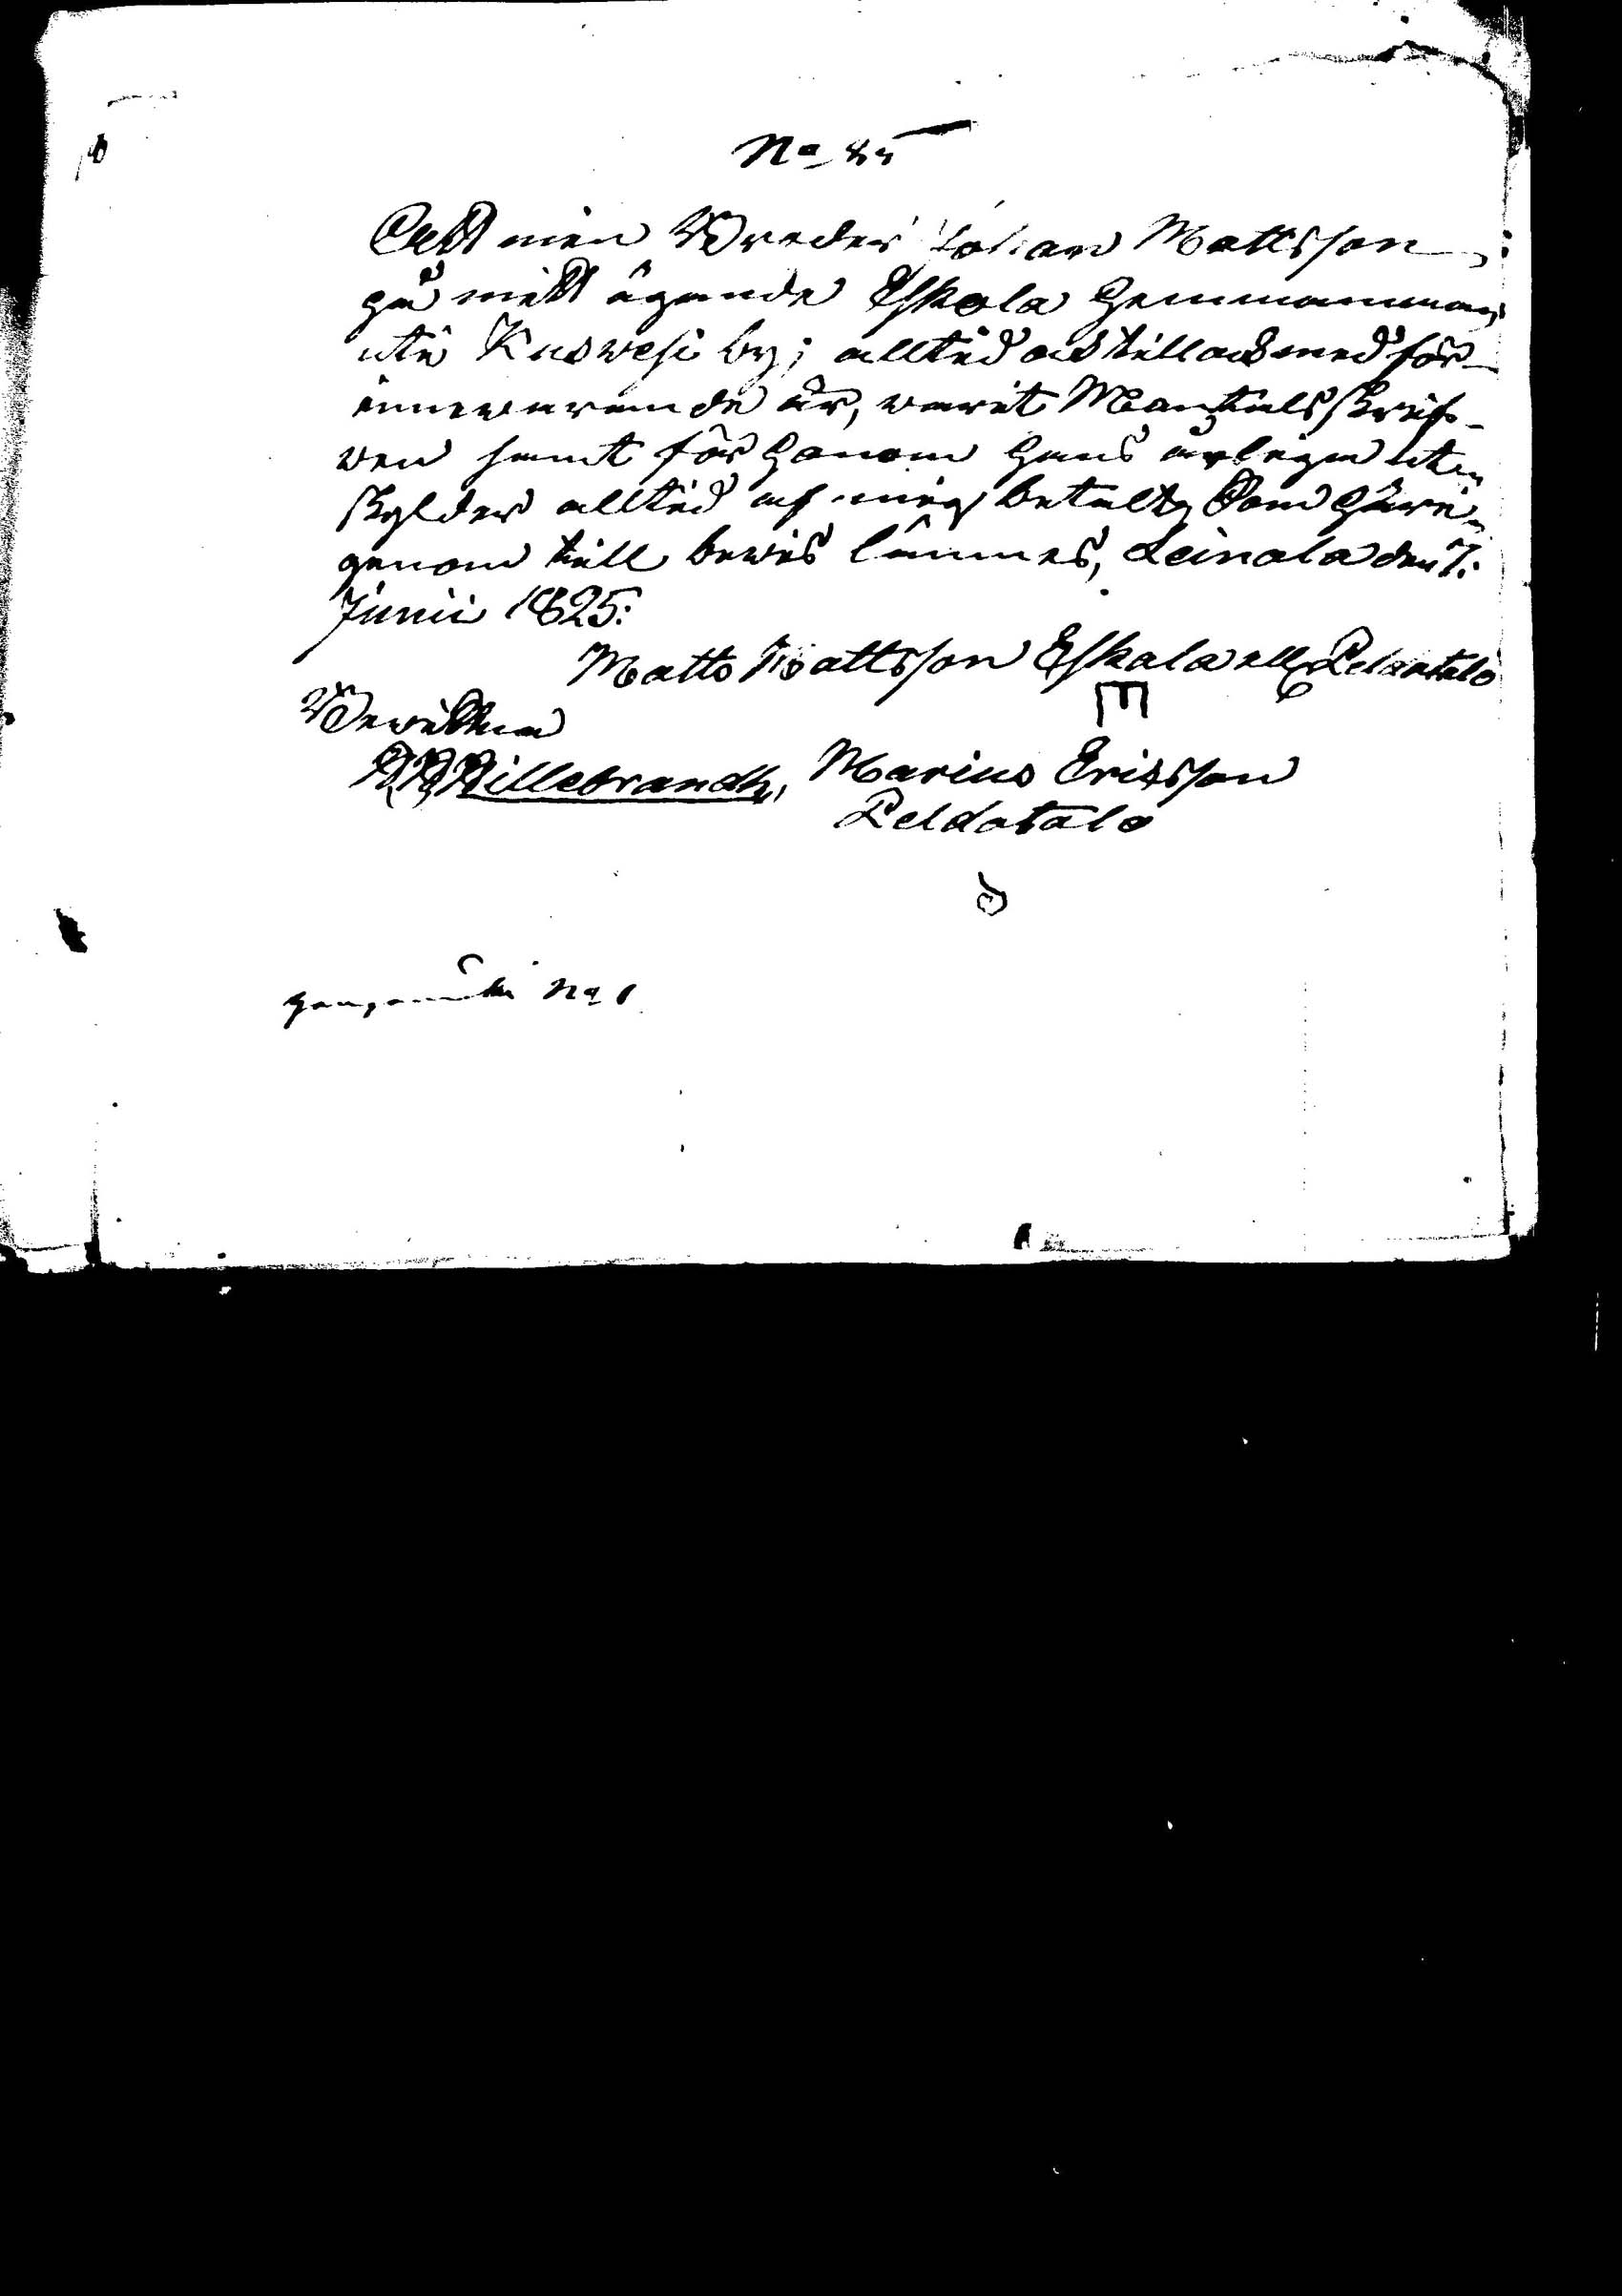 No 85
Att min Broder Johan Mattsson
på mitt ägande Eskola Hemmanman
uti Kuswesi by; alltid och till och med för
innewarande år, warit Mantalsskrif-
wen samt för honom hans årliga ut-
skylder alltid af mig betalt, Som häri-
genom till bewis lämnas, Leinola den 7:
Junii 1825:
Matts Mattsson Eskala ell Peldotalo
Bewittna
Hillebrandh, Marius Ericsson
Peldotalo
No 1